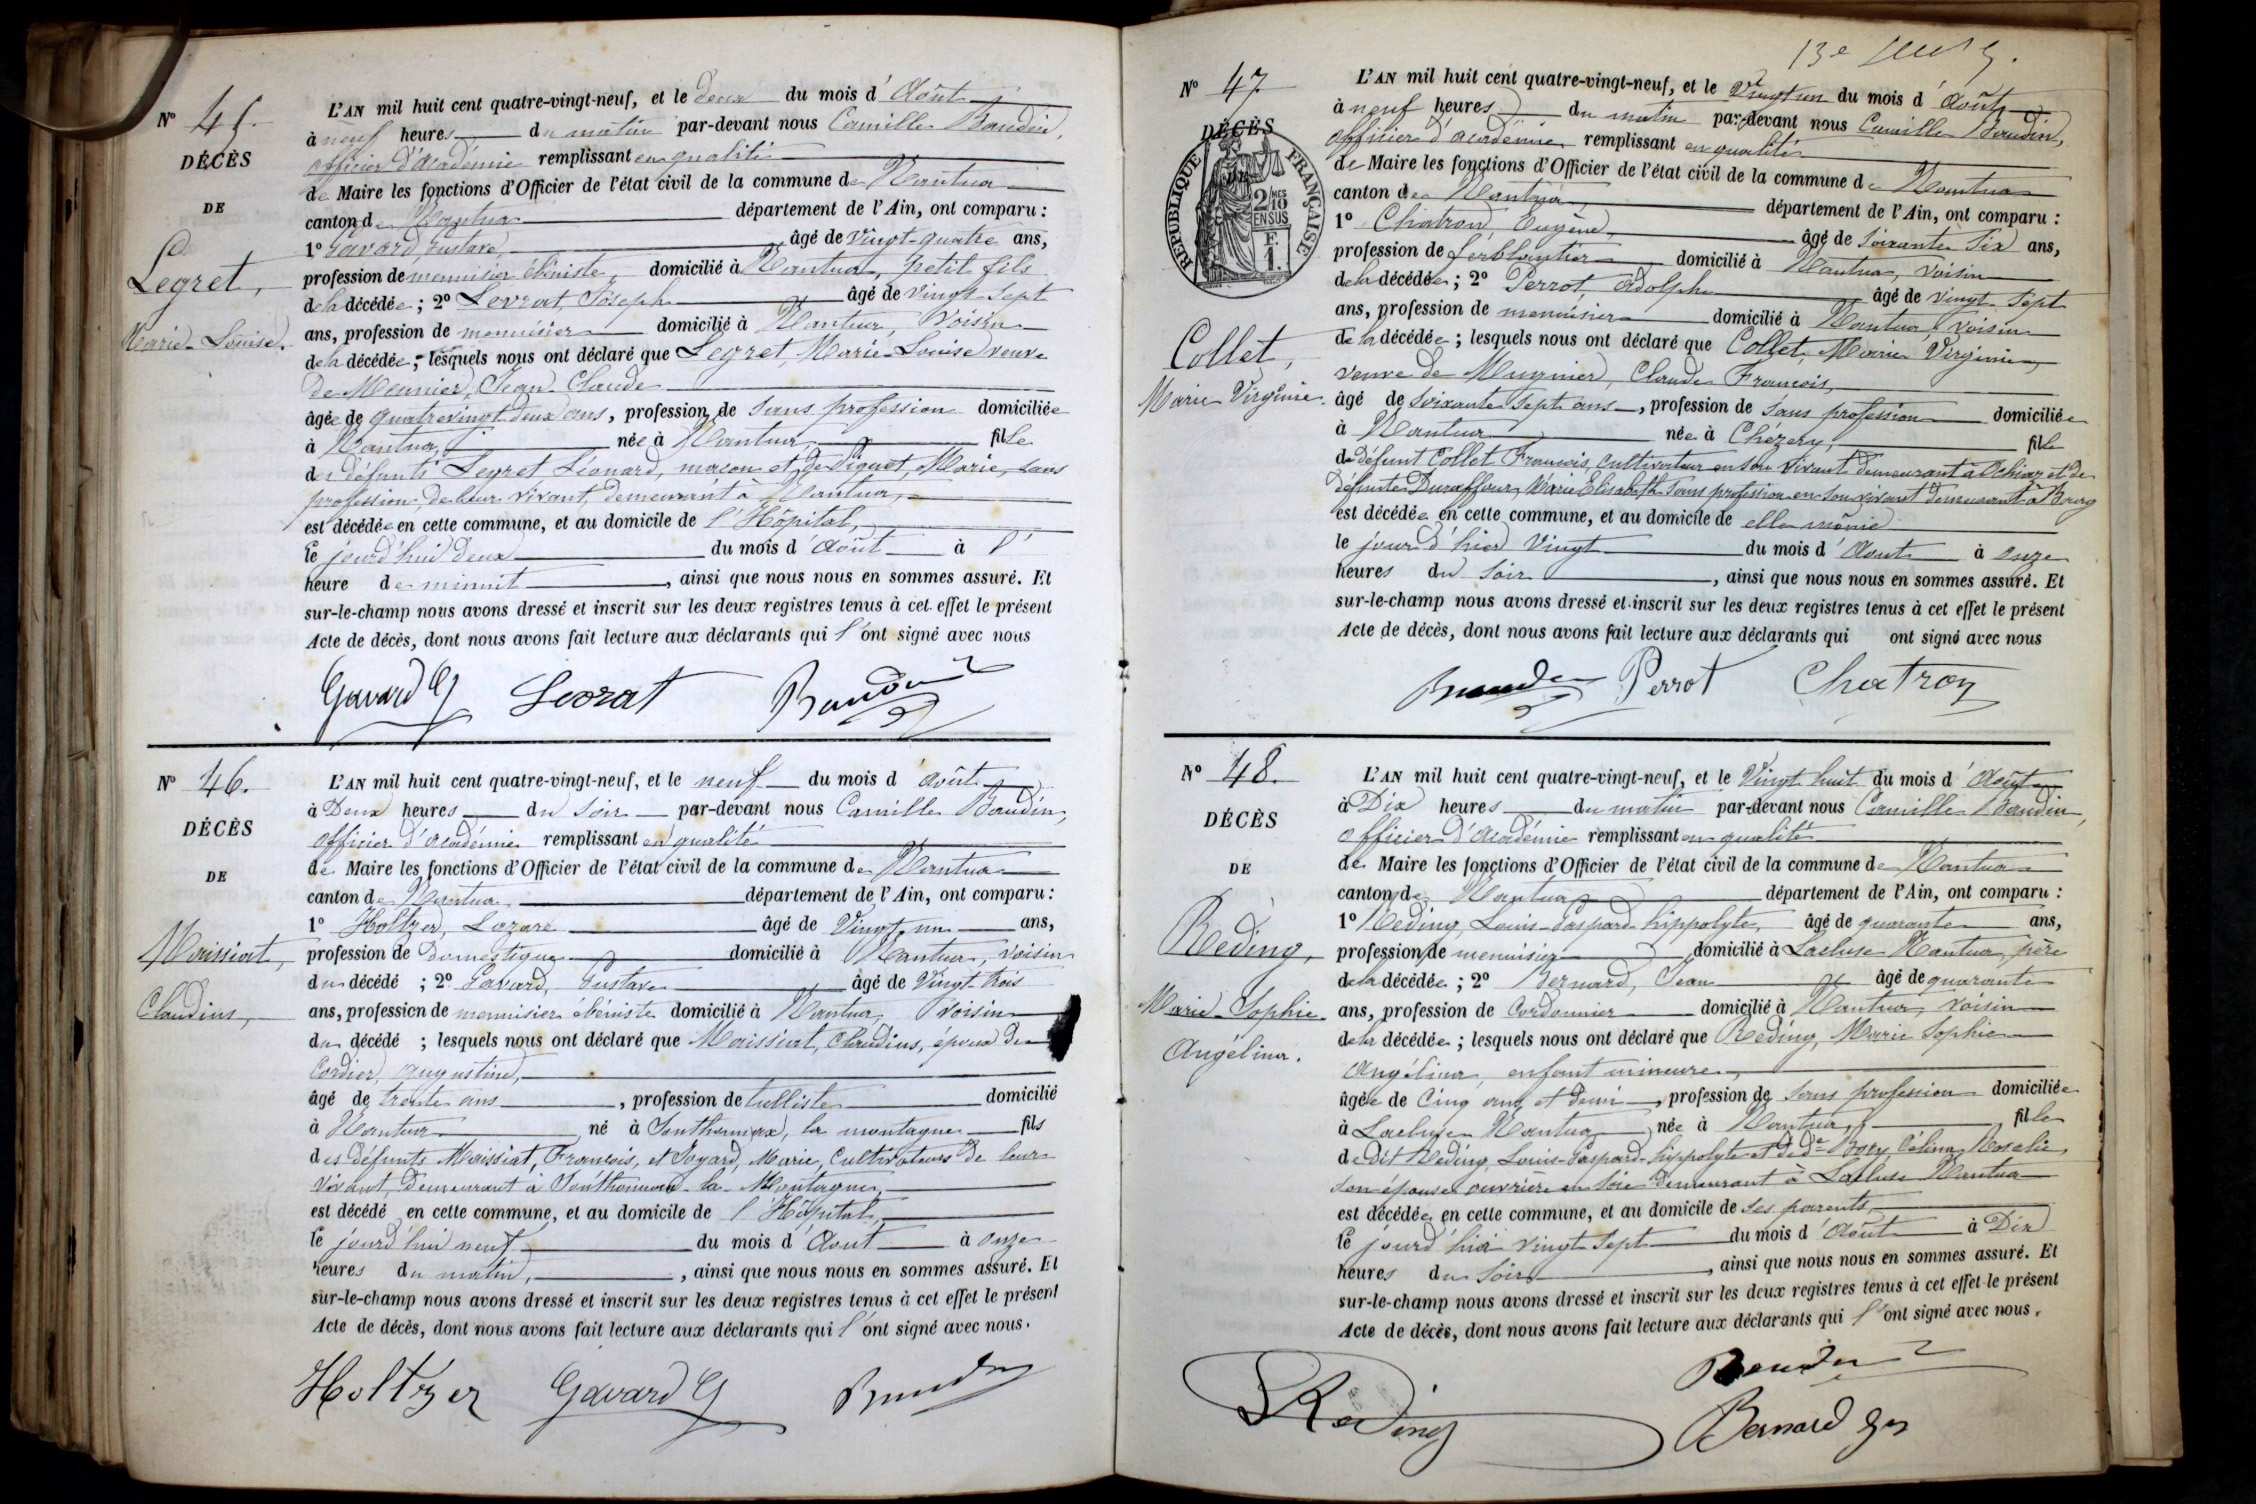 Nº 45.
DÉCÈS
DE
Legret,
Marie-Louise.
L'AN mil huit cent quatre-vingt-neuf, et le deux du mois d'Août
à neuf heures du matin par-devant nous Camille Baudin,
officier d'académie remplissant en qualité
de Maire les fonctions d'Officier de l'état civil de la commune de Nantua
canton de Nantua département de l'Ain, ont comparu :
1º Gavard, Gustave âgé de vingt-quatre ans,
profession de menuisier ébéniste, domicilié à Nantua, petit fils
de la décédée ; 2º Levrat, Joseph âgé de vingt-sept
ans, profession de menuisier domicilié à Nantua, voisin
de la décédée ; lesquels nous ont déclaré que Legret, Marie-Louise veuve
de Meunier, Jean Claude
âgée de quatrevingt deux ans, profession de sans profession domiciliée
à Nantua, née à Nantua, fille
des défunts Legret Léonard, maçon et de Piquet, Marie, sans
profession, de leur vivant, demeurant à Nantua,
est décédée en cette commune, et au domicile de l'Hôpital,
le jourd'hui deux du mois d'Août à l'
heure de minuit, ainsi que nous nous en sommes assuré. Et
sur-le-champ nous avons dressé et inscrit sur les deux registres tenus à cet effet le présent
Acte de décès, dont nous avons fait lecture aux déclarants qui l'ont signé avec nous
Gavard G Levrat Baudin
Nº 46.
DÉCÈS
DE
Maissiat,
Claudius,
L'AN mil huit cent quatre-vingt-neuf, et le neuf du mois d'Août
à Deux heures du Soir par-devant nous Camille Baudin,
officier d'académie remplissant en qualité
de Maire les fonctions d'Officier de l'état civil de la commune de Nantua
canton de Nantua département de l'Ain, ont comparu :
1º Holtzer, Lazare âgé de Vingt un ans,
profession de Domestique domicilié à Nantua, voisin
du décédé ; 2º Gavard, Gustave âgé de Vingt trois
ans, profession de menuisier ébéniste domicilié à Nantua, voisin
du décédé ; lesquels nous ont déclaré que Maissiat, Claudius, époux de
Cordier, augustine,
âgé de trente ans, profession de tulliste domicilié
à Nantua né à Sonthonnax, la montagne fils
des défunts Maissiat, François, et Joyard, Marie, Cultivateurs de leur
vivant, demeurant à Sonthonnax-la-Montagne,
est décédé en cette commune, et au domicile de l'Hôpital,
le jourd'hui neuf du mois d'Août à onze
heures du matin, ainsi que nous nous en sommes assuré. Et
sur-le-champ nous avons dressé et inscrit sur les deux registres tenus à cet effet le présent
Acte de décès, dont nous avons fait lecture aux déclarants qui l'ont signé avec nous.
Holtzer Gavard G Baudin
13e
Nº 47
DÉCÈS
RÉPUBLIQUE FRANÇAISE
2/10 MES
EN SUS
F.
1.
Collet,
Marie Virginie.
L'AN mil huit cent quatre-vingt-neuf, et le Vingt un du mois d'Août
à neuf heures du matin par-devant nous Camille Baudin,
officier d'académie remplissant en qualité
de Maire les fonctions d'Officier de l'état civil de la commune de Nantua
canton de Nantua, département de l'Ain, ont comparu :
1º Chatron, Eugène, âgé de soixante six ans,
profession de ferblantier domicilié à Nantua, voisin
de la décédée ; 2º Perrot, Adolphe âgé de vingt sept
ans, profession de menuisier domicilié à Nantua, voisin
de la décédée ; lesquels nous ont déclaré que Collet, Marie Virginie,
veuve de Mugnier, Claude François,
âgé de soixante sept ans, profession de sans profession domiciliée
à Nantua née à Chézery, fille
de défunt Collet François, cultivateur en son vivant demeurant à Ochiaz et de
défunte Duraffour, Marie Elisabeth sans profession en son vivant demeurant à Bourg
est décédée en cette commune, et au domicile de elle même
le jour d'hier Vingt du mois d'Août à onze
heures du soir, ainsi que nous nous en sommes assuré. Et
sur-le-champ nous avons dressé et inscrit sur les deux registres tenus à cet effet le présent
Acte de décès, dont nous avons fait lecture aux déclarants qui ont signé avec nous
Baudin Perrot Chatron
Nº 48.
DÉCÈS
DE
Reding,
Marie-Sophie
Angélina.
L'AN mil huit cent quatre-vingt-neuf, et le Vingt huit du mois d'Août
à Dix heures du matin par-devant nous Camille Baudin,
officier d'académie remplissant en qualité
de Maire les fonctions d'Officier de l'état civil de la commune de Nantua
canton de Nantua département de l'Ain, ont comparu :
1º Reding, Louis-Gaspard-hippolyte, âgé de quarante ans,
profession de menuisier domicilié à Lacluse Nantua, père
de la décédée ; 2º Bernard, Jean âgé de quarante
ans, profession de Cordonnier domicilié à Nantua, voisin
de la décédée ; lesquels nous ont déclaré que Reding, Marie Sophie
Angélina, enfant mineure,
âgée de Cinq ans et demi, profession de sans profession domiciliée
à Lacluse Nantua, née à Nantua, fille
de dit Reding, Louis-Gaspard-hippolyte et de de Bory, Célina Rosalie,
son épouse ouvrière en soie demeurant à Lacluse Nantua
est décédée en cette commune, et au domicile de ses parents,
le jourd'hier vingt sept du mois d'Août à Dix
heures du soir, ainsi que nous nous en sommes assuré. Et
sur-le-champ nous avons dressé et inscrit sur les deux registres tenus à cet effet le présent
Acte de décès, dont nous avons fait lecture aux déclarants qui l'ont signé avec nous.
Baudin
Reding Bernard